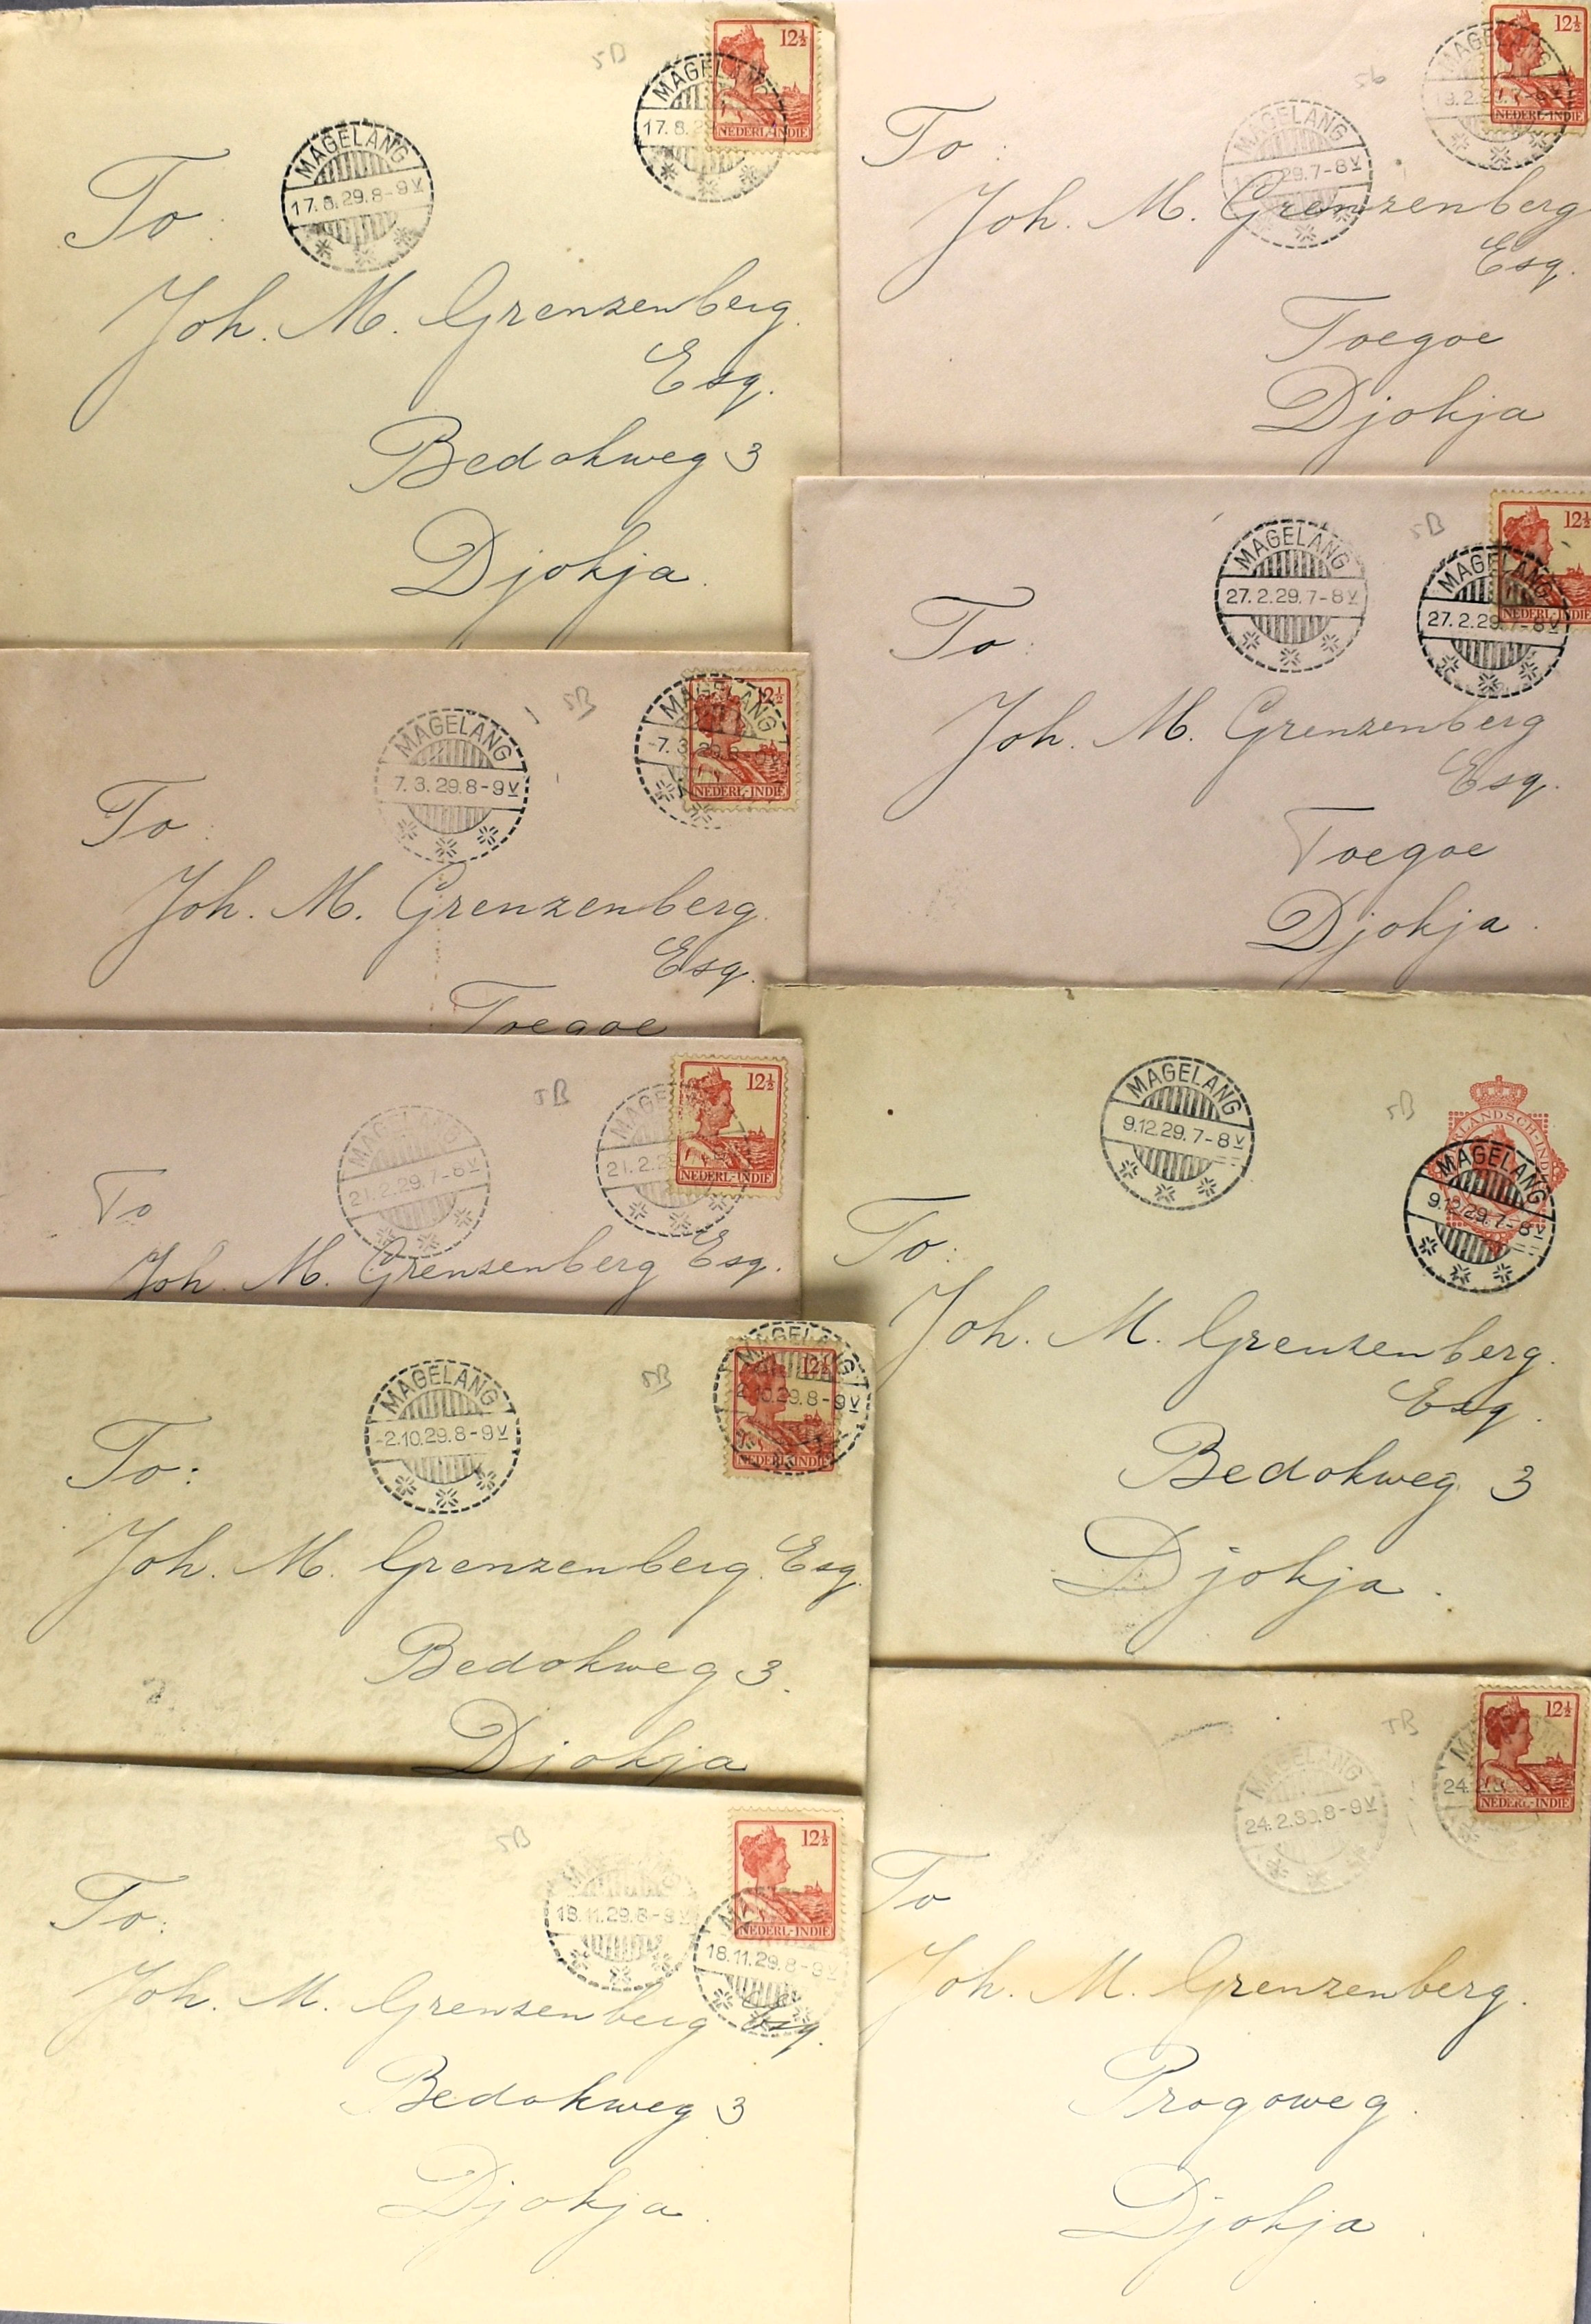 5B
12½
NEDERL-INDIE
MAGELANG
17.8.2
MAGELANG
17.8.29.8-9V
To:
Joh. M. Grenzenberg
Esq.
Bedokweg 3
Djokja.
56
12½
NEDERL-INDIE
MAGELANG
7-8V
MAGELANG
29.7-8V
To:
Joh. M. Grenzenberg
Esq.
Toegoe
Djokja
5B
12½
NEDERL-INDIE
MAGELANG
7.3.29.8-9V
MAGELANG
-7.3.29.8-9V
To:
Joh. M. Grenzenberg
Esq.
Toegoe
5B
12½
NEDERL-INDIE
MAGELANG
27.2.29.7-8V
MAGELANG
27.2.29.7-8V
To:
Joh. M. Grenzenberg
Esq.
Toegoe
Djokja.
5B
12½
NEDERL-INDIE
MAGELANG
21.2.29.7-8V
MAGE
21.2.29
To
Joh. M. Grenzenberg Esq.
5B
MAGELANG
9.12.29.7-8V
MAGELANG
9.12.29.7-8V
To:
Joh. M. Grenzenberg.
Esq.
Bedokweg 3
Djokja.
5B
12½
NEDERL-INDIE
MAGELANG
-2.10.29.8-9V
MAGELANG
2.10.29.8-9V
To:
Joh. M. Grenzenberg. Esq.
Bedokweg 3.
Djokja
5B
12½
NEDERL-INDIE
18.11.29.8-9V
18.11.29.8-9V
To:
Joh. M. Grenzenberg Esq.
Bedokweg 3
Djokja.
5B
12½
NEDERL-INDIE
MAGELANG
24.2.30.8-9V
24.2.3
To
Joh. M. Grenzenberg.
Progoweg.
Djokja.